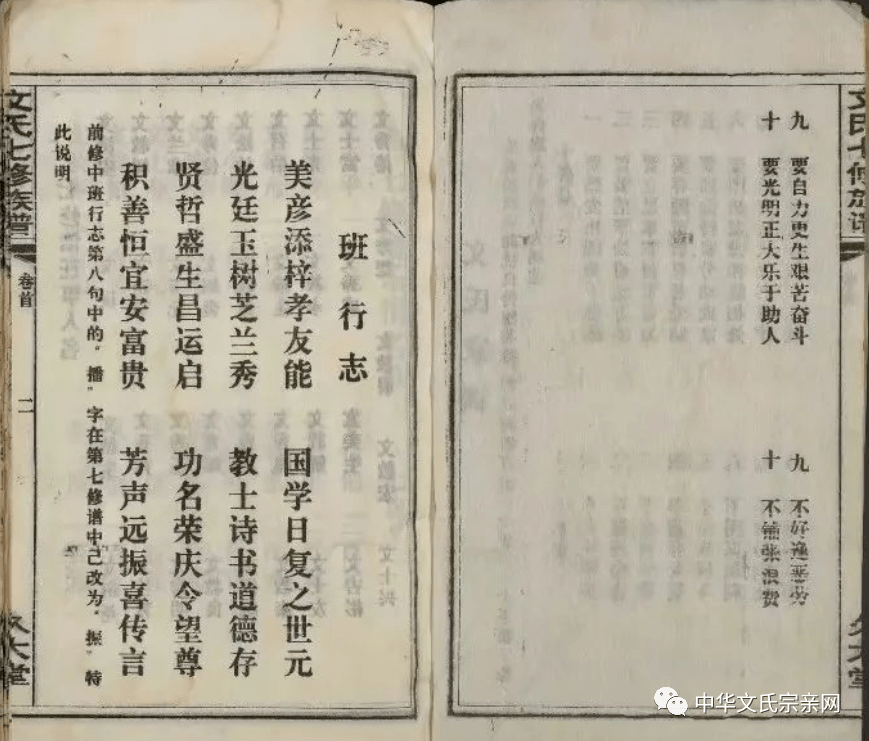 文氏七修族谱
九 要自力更生艰苦奋斗
九 不好逸恶劳
十 要光明正大乐于助人
十 不铺张浪费
久大堂
班行志
美彦添梓孝友能 国学日复之世元
光廷玉树芝兰秀 教士诗书道德存
贤哲盛生昌运启 功名荣庆令望尊
积善恒宜安富贵 芳声远振喜传言
前修中班行志第八句中的“播”字在第七修谱中已改为“振”特
此说明
文氏七修族谱
卷首
二
久大堂
中华文氏宗亲网